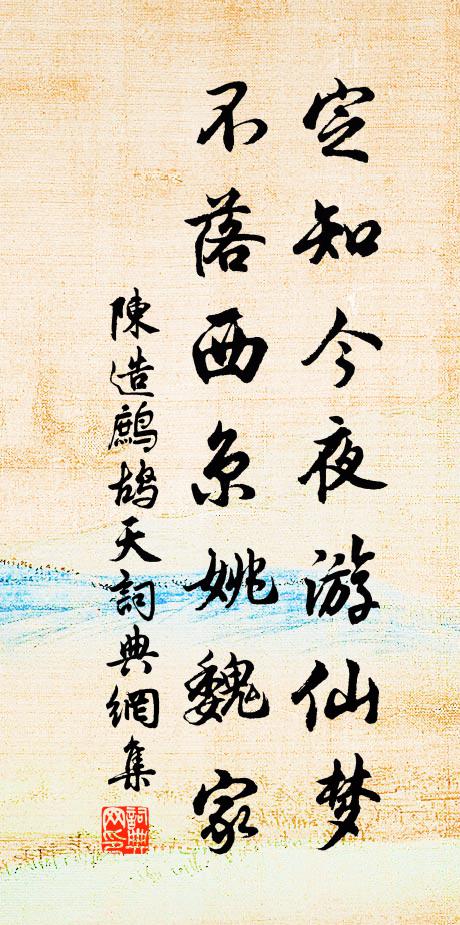 定知今夜游仙梦
不落西京姚魏家
陳造鷓鴣天詞典網集
詞典网印